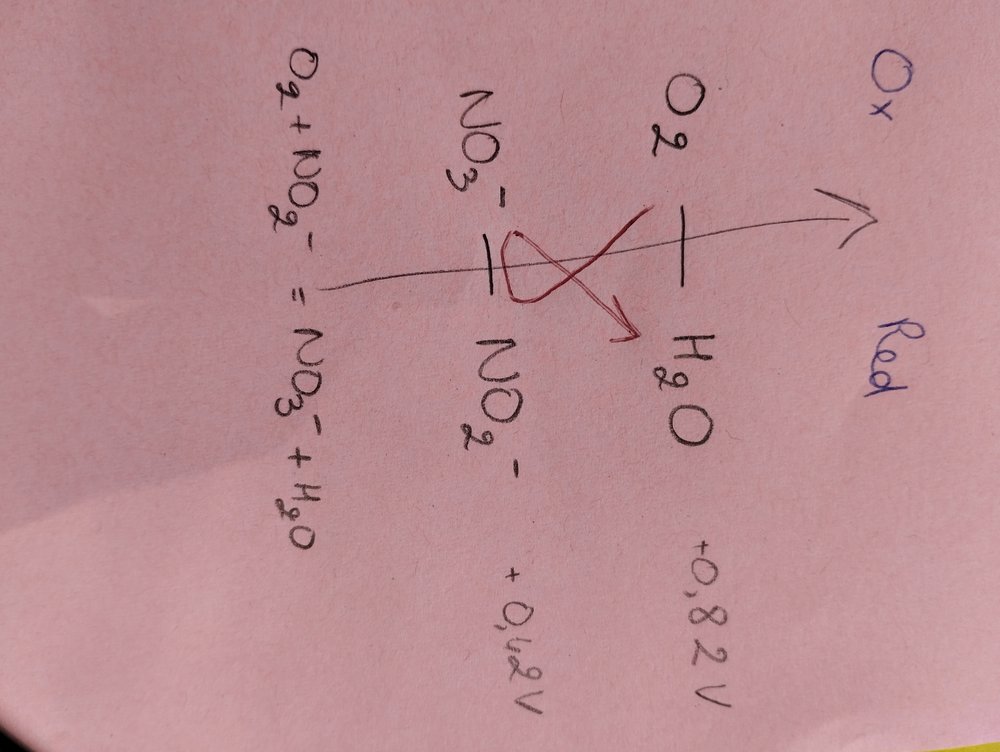 Ox Red
O₂ H₂O +0,82 V
NO₃⁻ NO₂⁻ +0,42 V
O₂ + NO₂⁻ = NO₃⁻ + H₂O